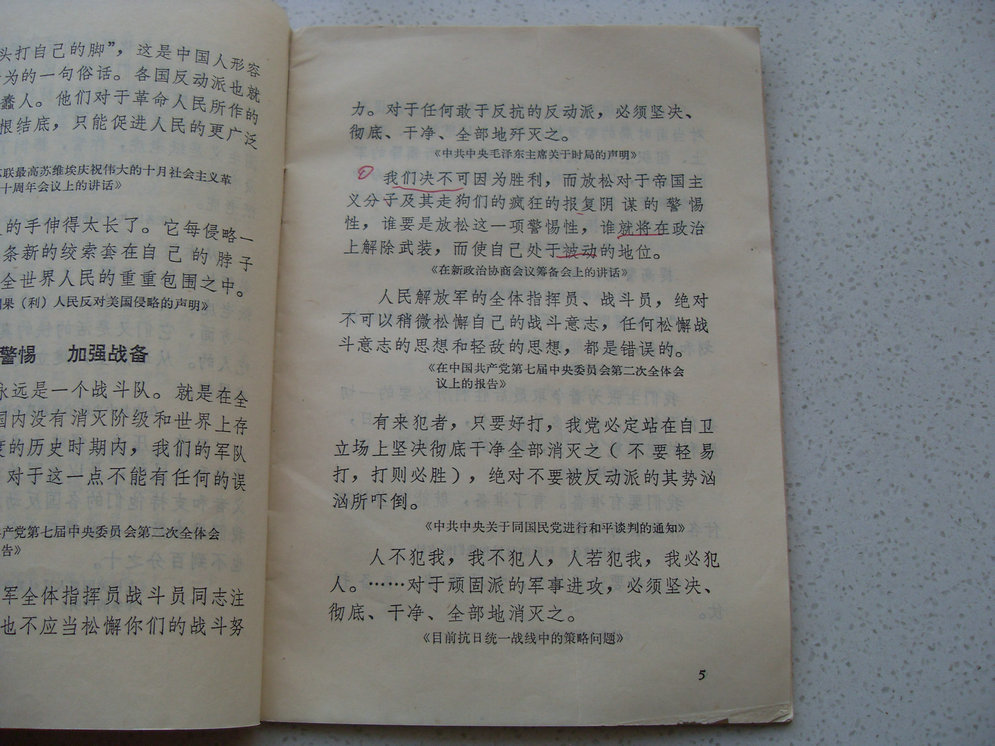 头打自己的脚”，这是中国人形容
为的一句俗话。各国反动派也就
蠢人。他们对于革命人民所作的
根结底，只能促进人民的更广泛
联最高苏维埃庆祝伟大的十月社会主义革
十周年会议上的讲话》
的手伸得太长了。它每侵略一
条新的绞索套在自己的脖子
全世界人民的重重包围之中。
果（利）人民反对美国侵略的声明》
警惕 加强战备
永远是一个战斗队。就是在全
国内没有消灭阶级和世界上存
度的历史时期内，我们的军队
对于这一点不能有任何的误
产党第七届中央委员会第二次全体会
告》
军全体指挥员战斗员同志注
也不应当松懈你们的战斗努
力。对于任何敢于反抗的反动派，必须坚决、
彻底、干净、全部地歼灭之。
《中共中央毛泽东主席关于时局的声明》
我们决不可因为胜利，而放松对于帝国主
义分子及其走狗们的疯狂的报复阴谋的警惕
性，谁要是放松这一项警惕性，谁就将在政治
上解除武装，而使自己处于被动的地位。
《在新政治协商会议筹备会上的讲话》
人民解放军的全体指挥员、战斗员，绝对
不可以稍微松懈自己的战斗意志，任何松懈战
斗意志的思想和轻敌的思想，都是错误的。
《在中国共产党第七届中央委员会第二次全体会
议上的报告》
有来犯者，只要好打，我党必定站在自卫
立场上坚决彻底干净全部消灭之（不要轻易
打，打则必胜），绝对不要被反动派的其势汹
汹所吓倒。
《中共中央关于同国民党进行和平谈判的通知》
人不犯我，我不犯人，人若犯我，我必犯
人。……对于顽固派的军事进攻，必须坚决、
彻底、干净、全部地消灭之。
《目前抗日统一战线中的策略问题》
5